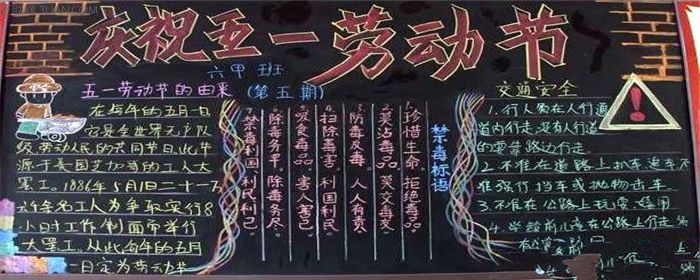 庆祝五一劳动节
六甲班
五一劳动节的由来 (第五期)
在每年的五月一日
它是全世界无产阶
级、劳动人民的共同节日.此节
源于美国芝加哥的工人大
罢工。1886年5月1日二十一万
六千余名工人为争取实行8
小时工作制而举行
大罢工。从此每年的五月
一日定为劳动节
禁毒标语
1.珍惜生命 拒绝毒品
2.莫沾毒品 莫交毒友
3.防毒反毒 人人有责
4.扫除毒害 利国利民。
5.吸食毒品 害人害己
6.除毒务早 除毒务尽。
7.禁毒利国、利民利己。
交通安全
1.行人须在人行道
道内行走,没有人行道
的要靠路边行走
2.不准在道路上扒车追车,不
准强行拦车或抛物击车
3.不准在公路上玩耍、嬉闹
4.学龄前儿童在公路上行走